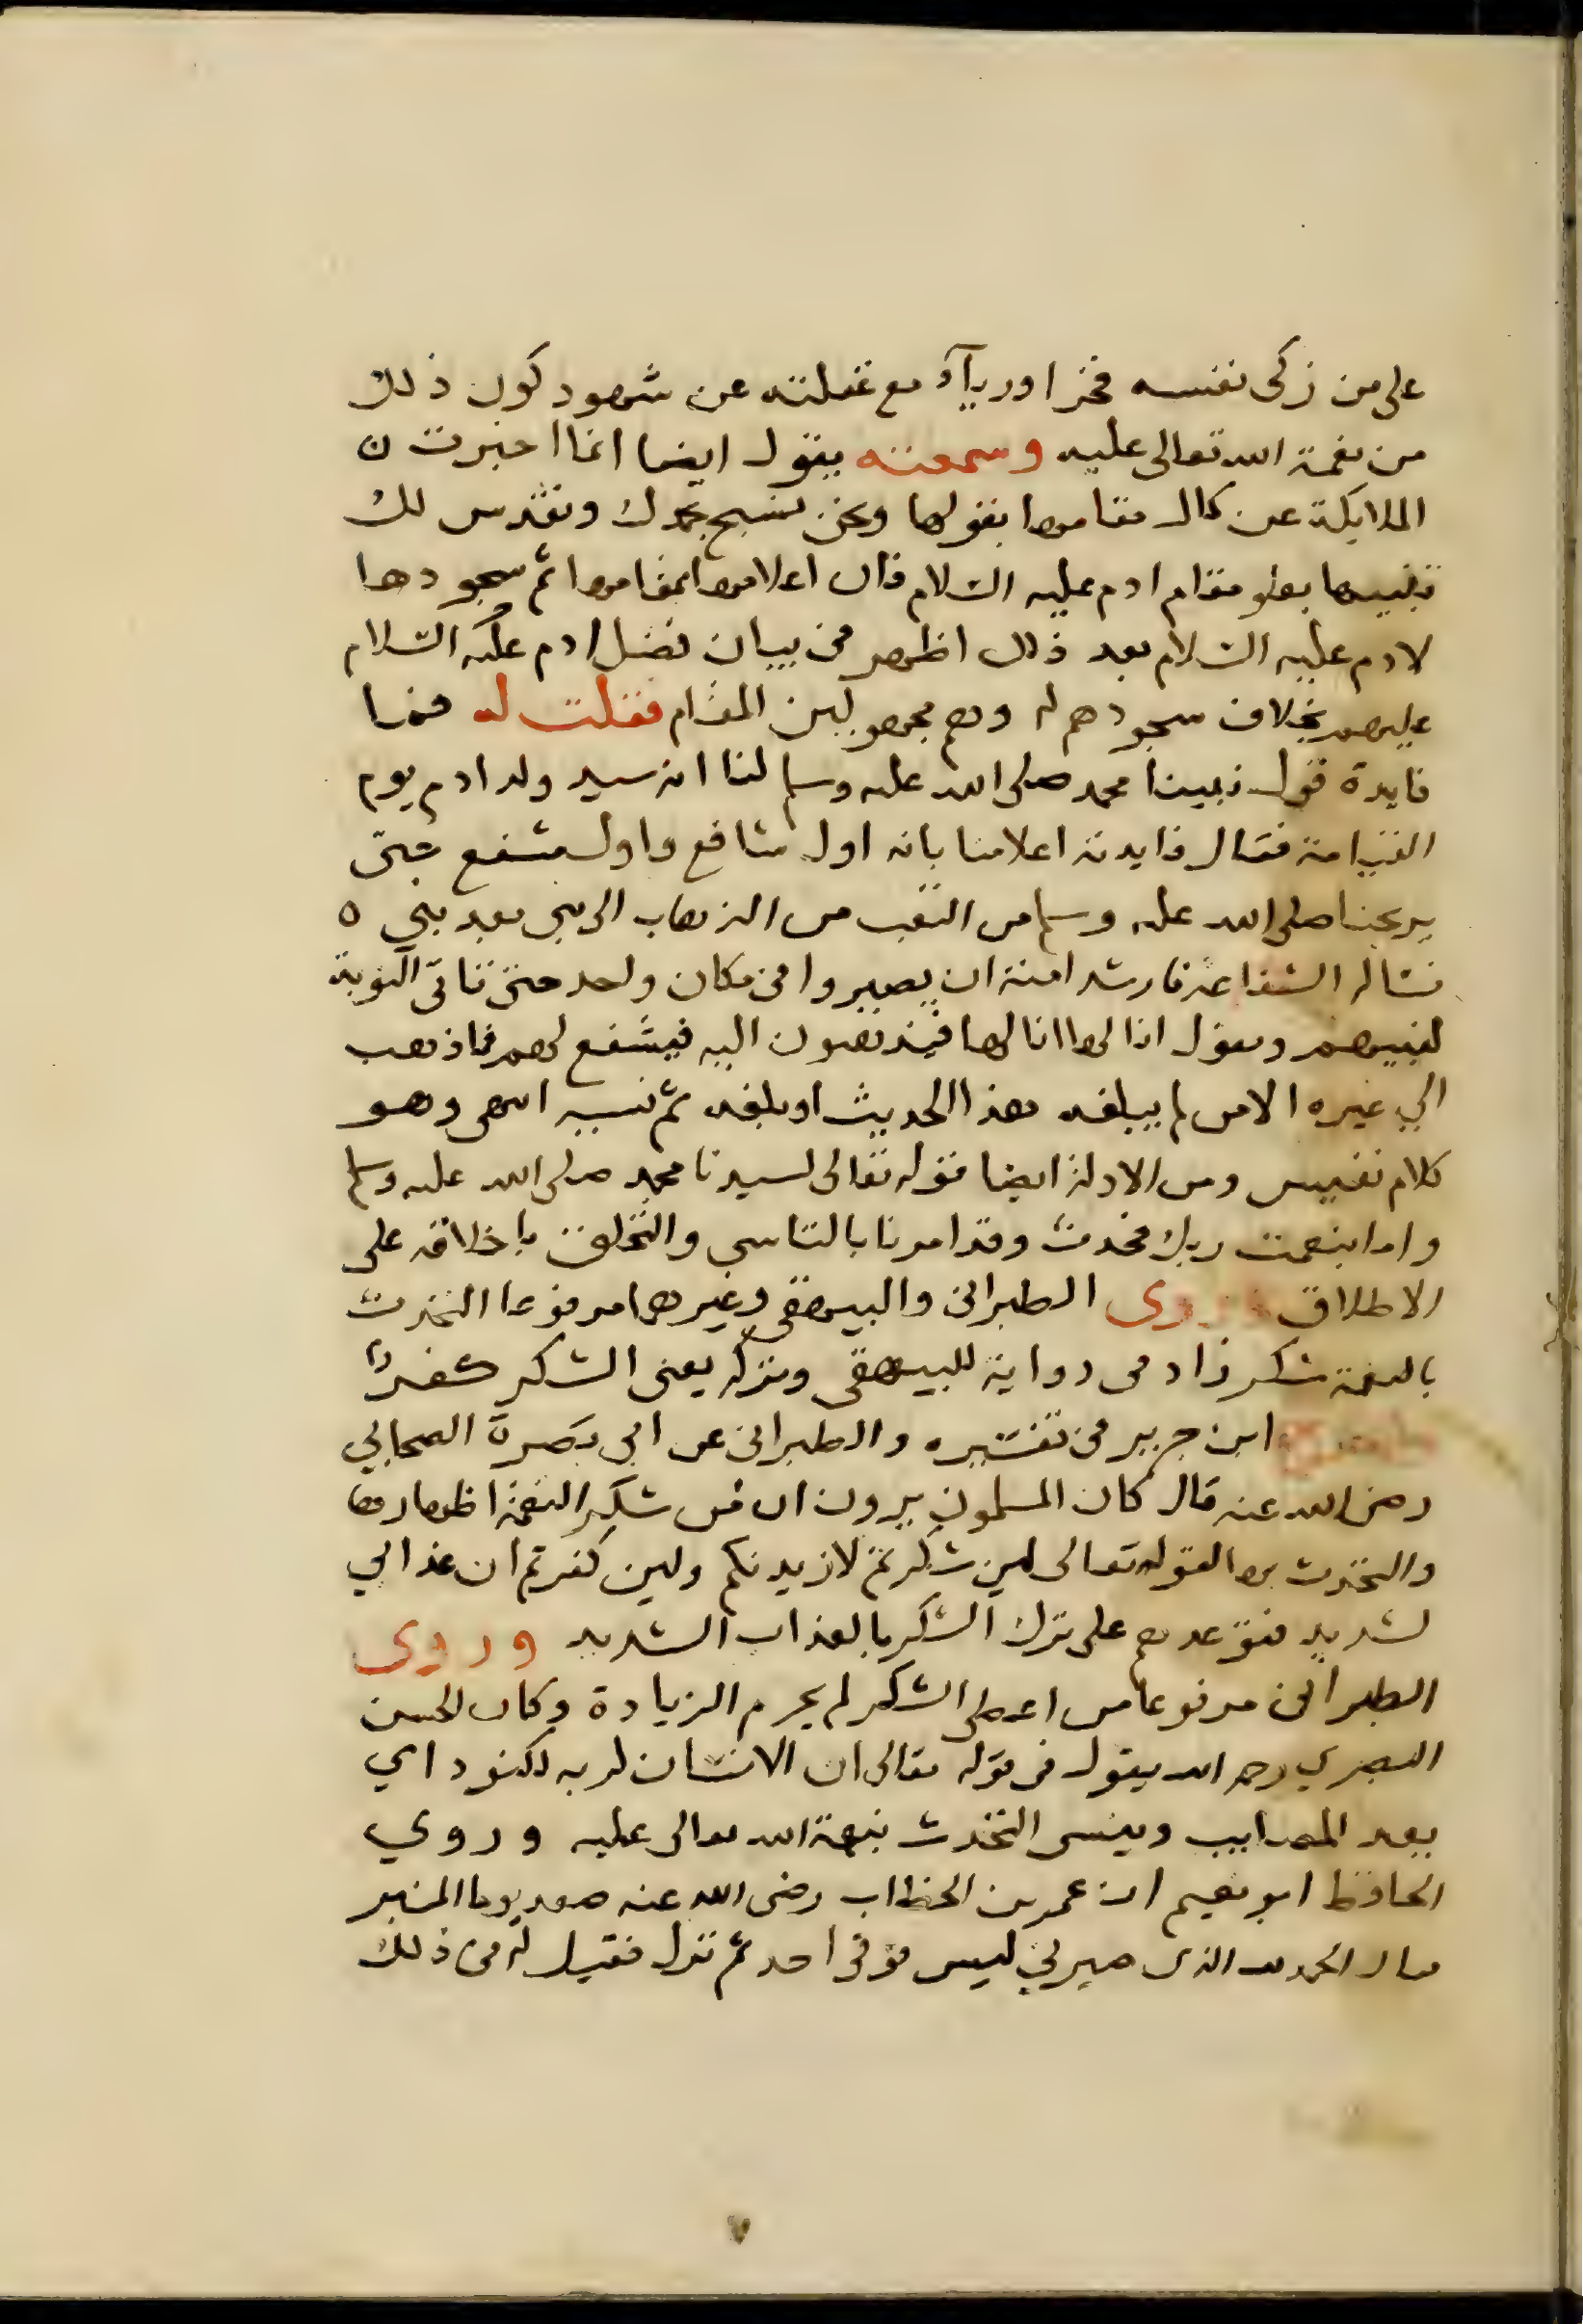 على من زكى نفسه فخرا ورياء مع غفلته عن شهود كون ذلك
من نعمة الله تعالى عليه وسمعته يقول ايضا انما اخبرت
الملايكة عن كمال مقامها بقولها ونحن نسبح بحمدك ونقدس لك
تنبيها بعلو مقام ادم عليه السلام فان اعلامها بمقامها ثم سجودها
لادم عليه السلام بعد ذلك اظهر في بيان فضل ادم عليه السلام
عليهم بخلاف سجودهم له وهم مجهولين المقام فقلت له فما
فايدة قول نبينا محمد صلى الله عليه وسلم لنا انه سيد ولد ادم يوم
القيامة فقال فايدته اعلامنا بانه اول شافع واول مشفع حتى
يريحنا صلى الله عليه وسلم من التعب من الذهاب الى نبي بعد نبي ه
نساله الشفاعة فارشد امته ان يصبروا في مكان واحد حتى تاتي النوبة
لنبيهم ويقول انا لها انا لها فيذهبون اليه فيشفع لهم فما ذهب
الي غيره الا من لم يبلغه هذا الحديث او بلغه ثم نسيه انتهى وهو
كلام نفيس ومن الادلة ايضا قوله تعالى لسيدنا محمد صلى الله عليه وسلم
واما بنعمت ربك فحدث وقد امرنا بالتاسي والتخلق باخلاقه على
الاطلاق وروى الطبراني والبيهقي وغيرهما مرفوعا التحدث
بالنعمة شكر زاد في رواية للبيهقي وتركه يعني الشكر كفر
ابن جرير في تفسيره والطبراني عن ابي بَصرة الصحابي
رضي الله عنه قال كان المسلمون يرون ان من شكر النعمة اظهارها
والتحدث بها لقوله تعالى لين شكرتم لازيدنكم ولين كفرتم ان عذابي
لشديد فتوعدهم على ترك الشكر بالعذاب الشديد وروى
الطبراني مرفوعا من اعطى الشكر لم يحرم الزيادة وكان الحسن
البصري رحمه الله يقول في قوله تعالى ان الانسان لربه لكنود اي
يعد المصايب وينسى التحدث بنعمة الله تعالى عليه وروي
الحافظ ابو نعيم ان عمر بن الخطاب رضي الله عنه صعد يوما المنبر
فقال الحمد لله الذي صيرني ليس فوقي احد ثم نزل فقيل له في ذلك
٧